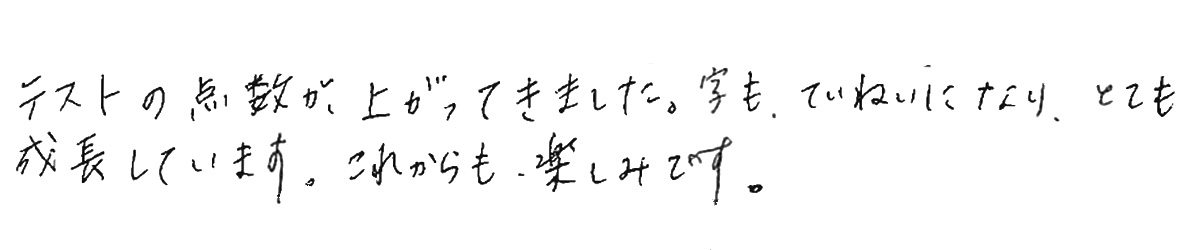 テストの点数が、上がってきました。字も、ていねいになり、とても
成長しています。これからも、楽しみです。